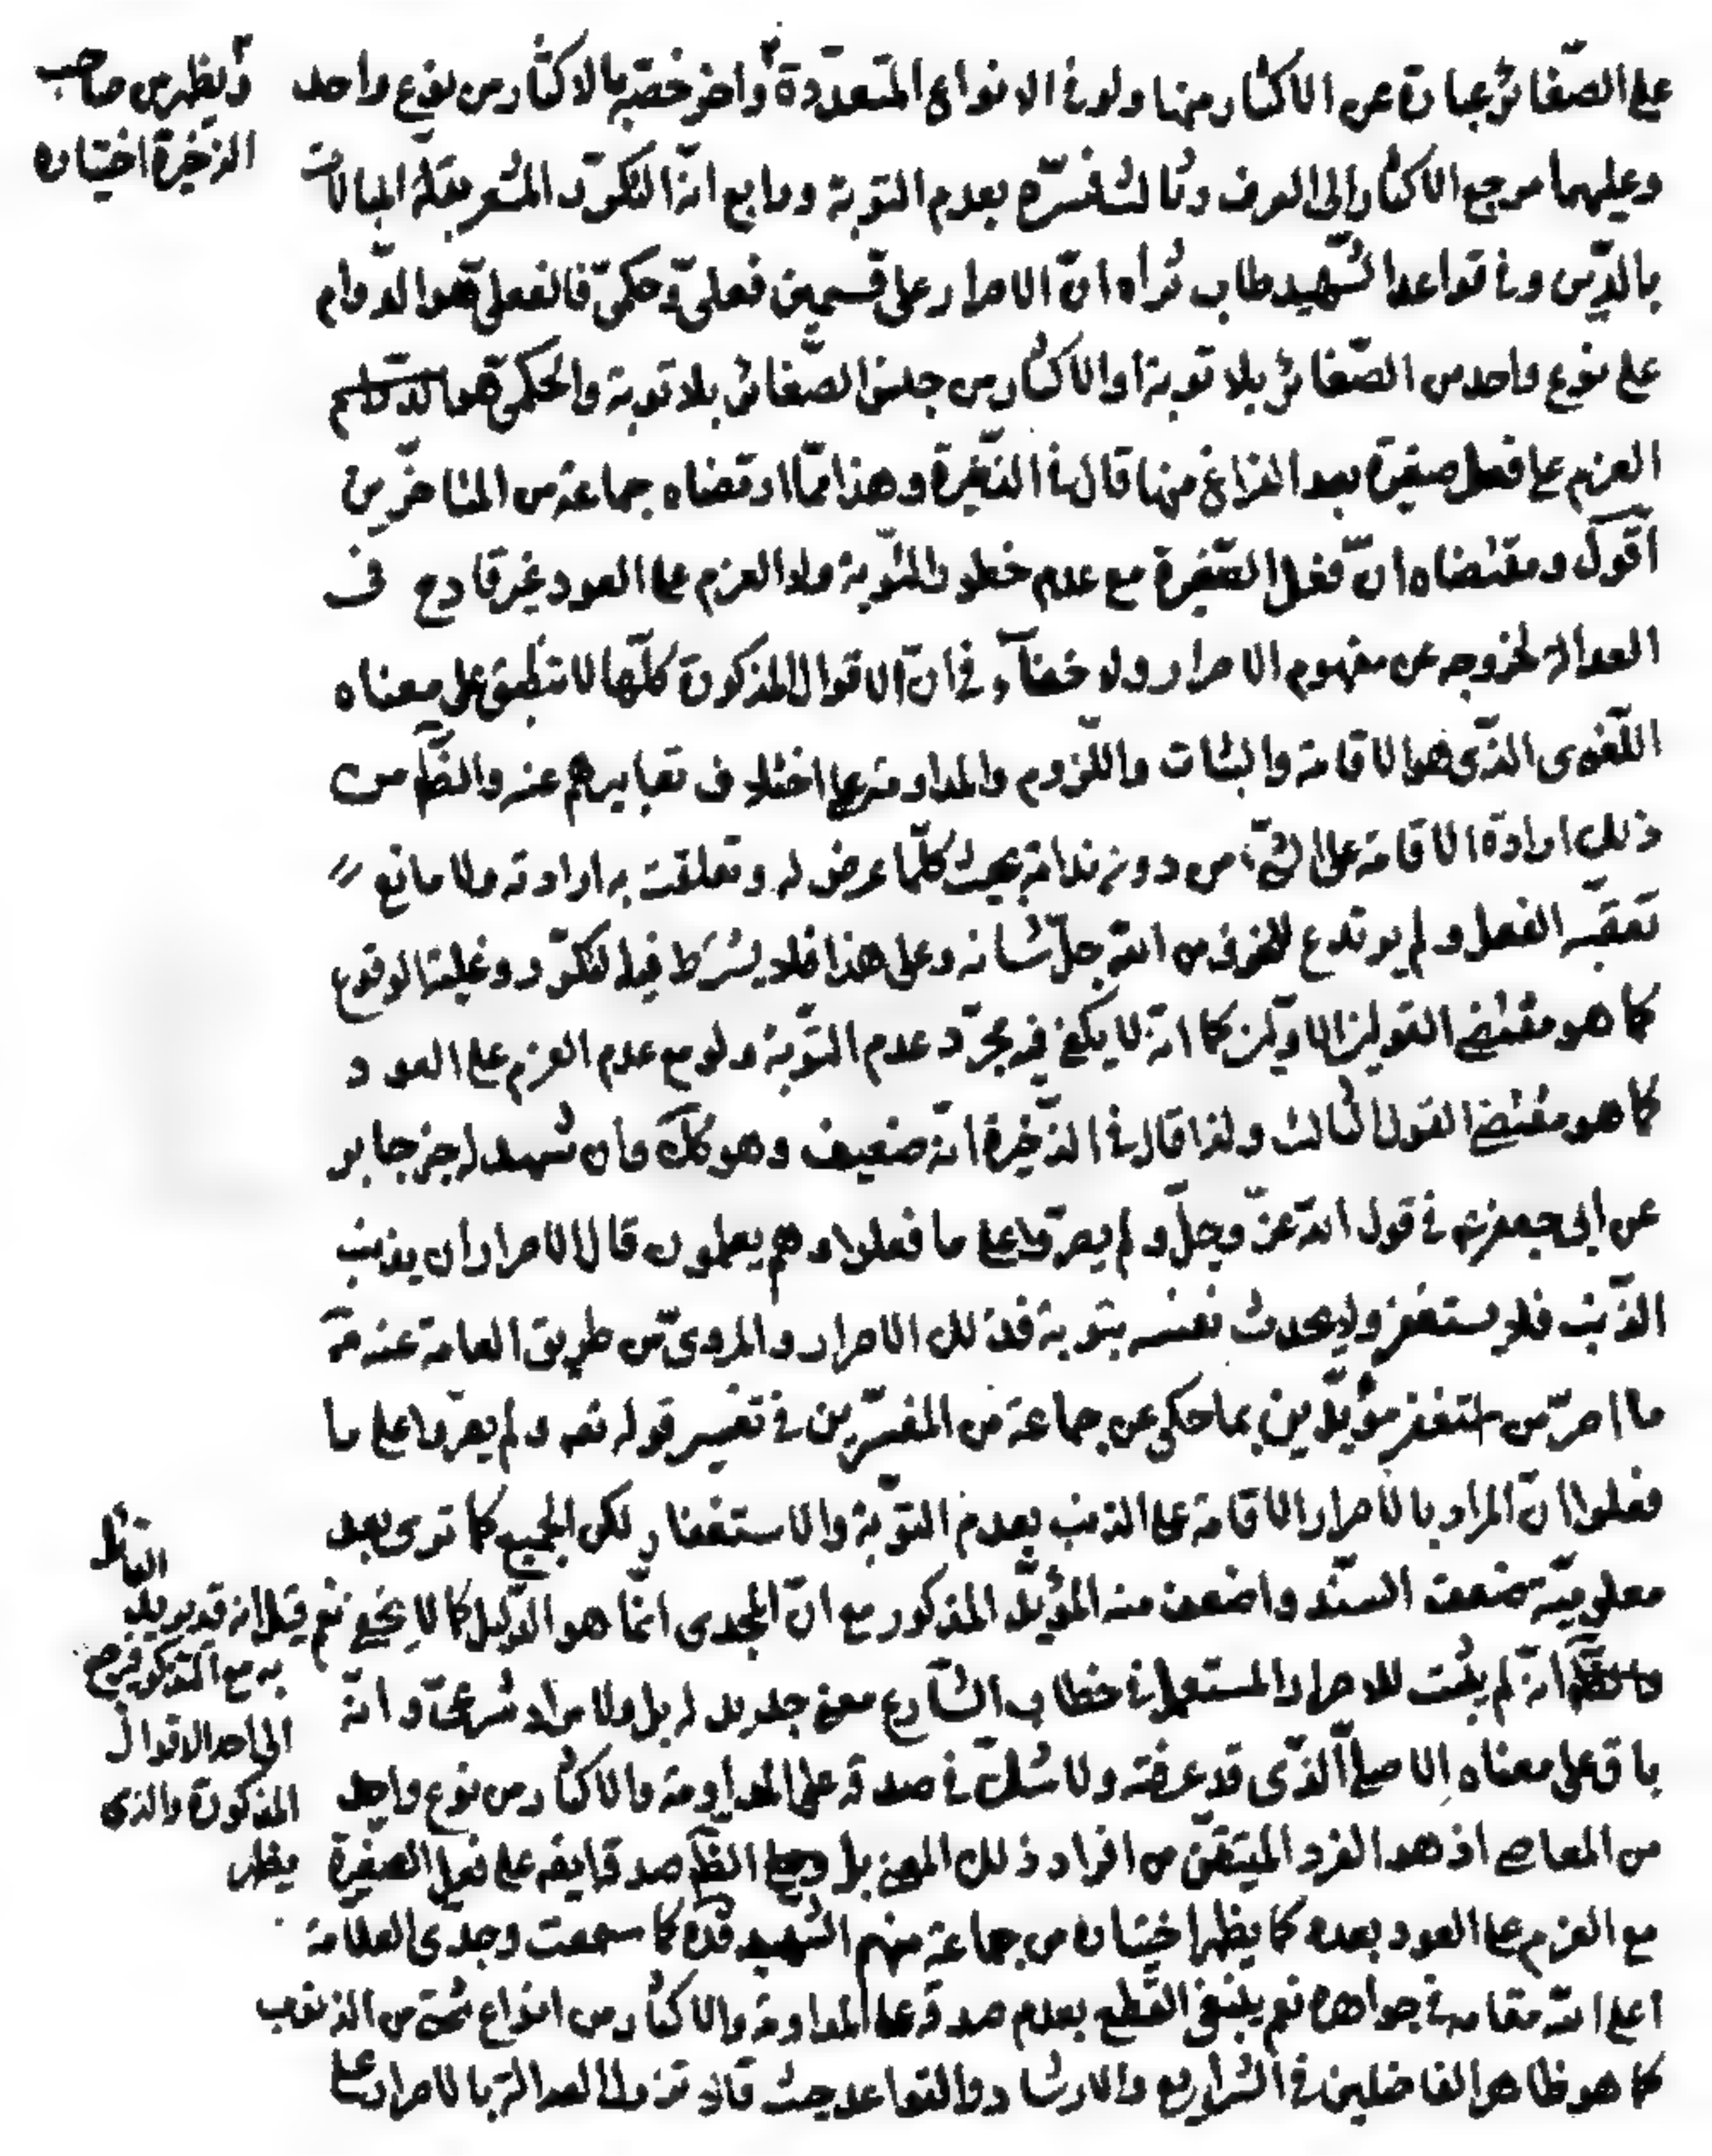 على الصّغائر عبارة عن الاكثار منها ولو في الانواع المتعدّدة وآخر خصّه بالاكثار من نوع واحد
ويظهر من صاحب
الذخيرة اختياره
وعليهما مرجع الاكثار الى العرف وثالث فسّره بعدم التوبة ورابع انّه التكرّر المشعر بقلة المبالات
بالدّين وفي قواعد الشّهيد طاب ثراه انّ الاصرار على قسمين فعلىّ وحكمىّ فالفعلىّ هو الدّوام
على نوع واحد من الصّغائر بلا توبة او الاكثار من جنس الصّغائر بلا توبة والحكمىّ هو
العزم على فعل صغيرة بعد الفراغ منها قال في الذّخيرة وهذا ممّا ارتضاه جماعة من المتاخّرين
اقول ومقتضاه انّ فعل الصّغيرة مع عدم خطور التّوبة ولا العزم على العود غير قادح فى
العدالة لخروجه عن مفهوم الاصرار ولا خفآء في انّ الاقوال المذكورة كلّها لا تنطبق على معناه
اللّغوى الذّى هو الاقامة والثبات واللّزوم والمداومة على اختلاف فى تعابيرهم عنه والظّ من
ذلك ارادة الاقامة على الشّئ من دون ندامة بحيث كلّما عرض له وتعلقت به ارادته ولا مانع
تعقّبه الفعل ولم يرتدع للخوف من اللّه جلّ شانه وعلى هذا فلا يشترط فيه التكرّر وغلبة الوقوع
كما هو مقتضى القولين الاوّلين كما انّه لا يكفى فيه مجرّد عدم التّوبة ولو مع عدم العزم على العود
كما هو مقتضى القول الثالث ولذا قال في الذّخيرة انّه ضعيف وهو كك وان شهد له خبر جابر
عن ابى جعفر ع في قول اللّه عزّ وجلّ ولم يصرّوا على ما فعلوا وهم يعلمون قال الاصرار ان يذنب
الذّنب فلا يستغفر ولا يحدث نفسه بتوبة فذلك الاصرار والمروىّ من طريق العامة عنه ص
ما اصرّ من استغفر مؤيّدين بما حكى عن جماعة من المفسّرين في تفسير قوله تعه ولم يصرّوا على ما
فعلوا انّ المراد بالاصرار الاقامة على الذنب بعدم التوّبة والاستغفار لكن الجميع كما ترى بعد
معلوميّة ضعف السنّد واضعف منه المؤيّد المذكور مع انّ المجدى انّما هو الدّليل كما لا يخفى نعم قيل انه قد يريد
القائل
به مع التذكر فيرجع
الى احد الاقوال
المذكورة والذى
يظهر
انّه لم يثبت للاصرار المستعمل في خطاب الشّارع معنى جديد له بل ولا مراد شرعىّ وانّه
باق على معناه الاصلىّ الذّى قد عرفته ولا شكّ في صدقه على المداومة والاكثار من نوع واحد
من المعاصى اذ هذا الفرد المتيقّن من افراد ذلك المعنى بل الظّ صدقه ايضه على فعل الصغيرة
مع العزم على العود بعده كما يظهر اختياره من جماعة منهم الشّهيد قدّه كما سمعت وجدّى العلّامة
اعلى اللّه مقامه في جواهره نعم ينبغى القطع بعدم صدقه على المداومة والاكثار من انواع شتّى من الذنوب
كما هو ظاهر الفاضلين في الشرايع والارشاد والقواعد حيث قالا تزول العدالة بالاصرار على